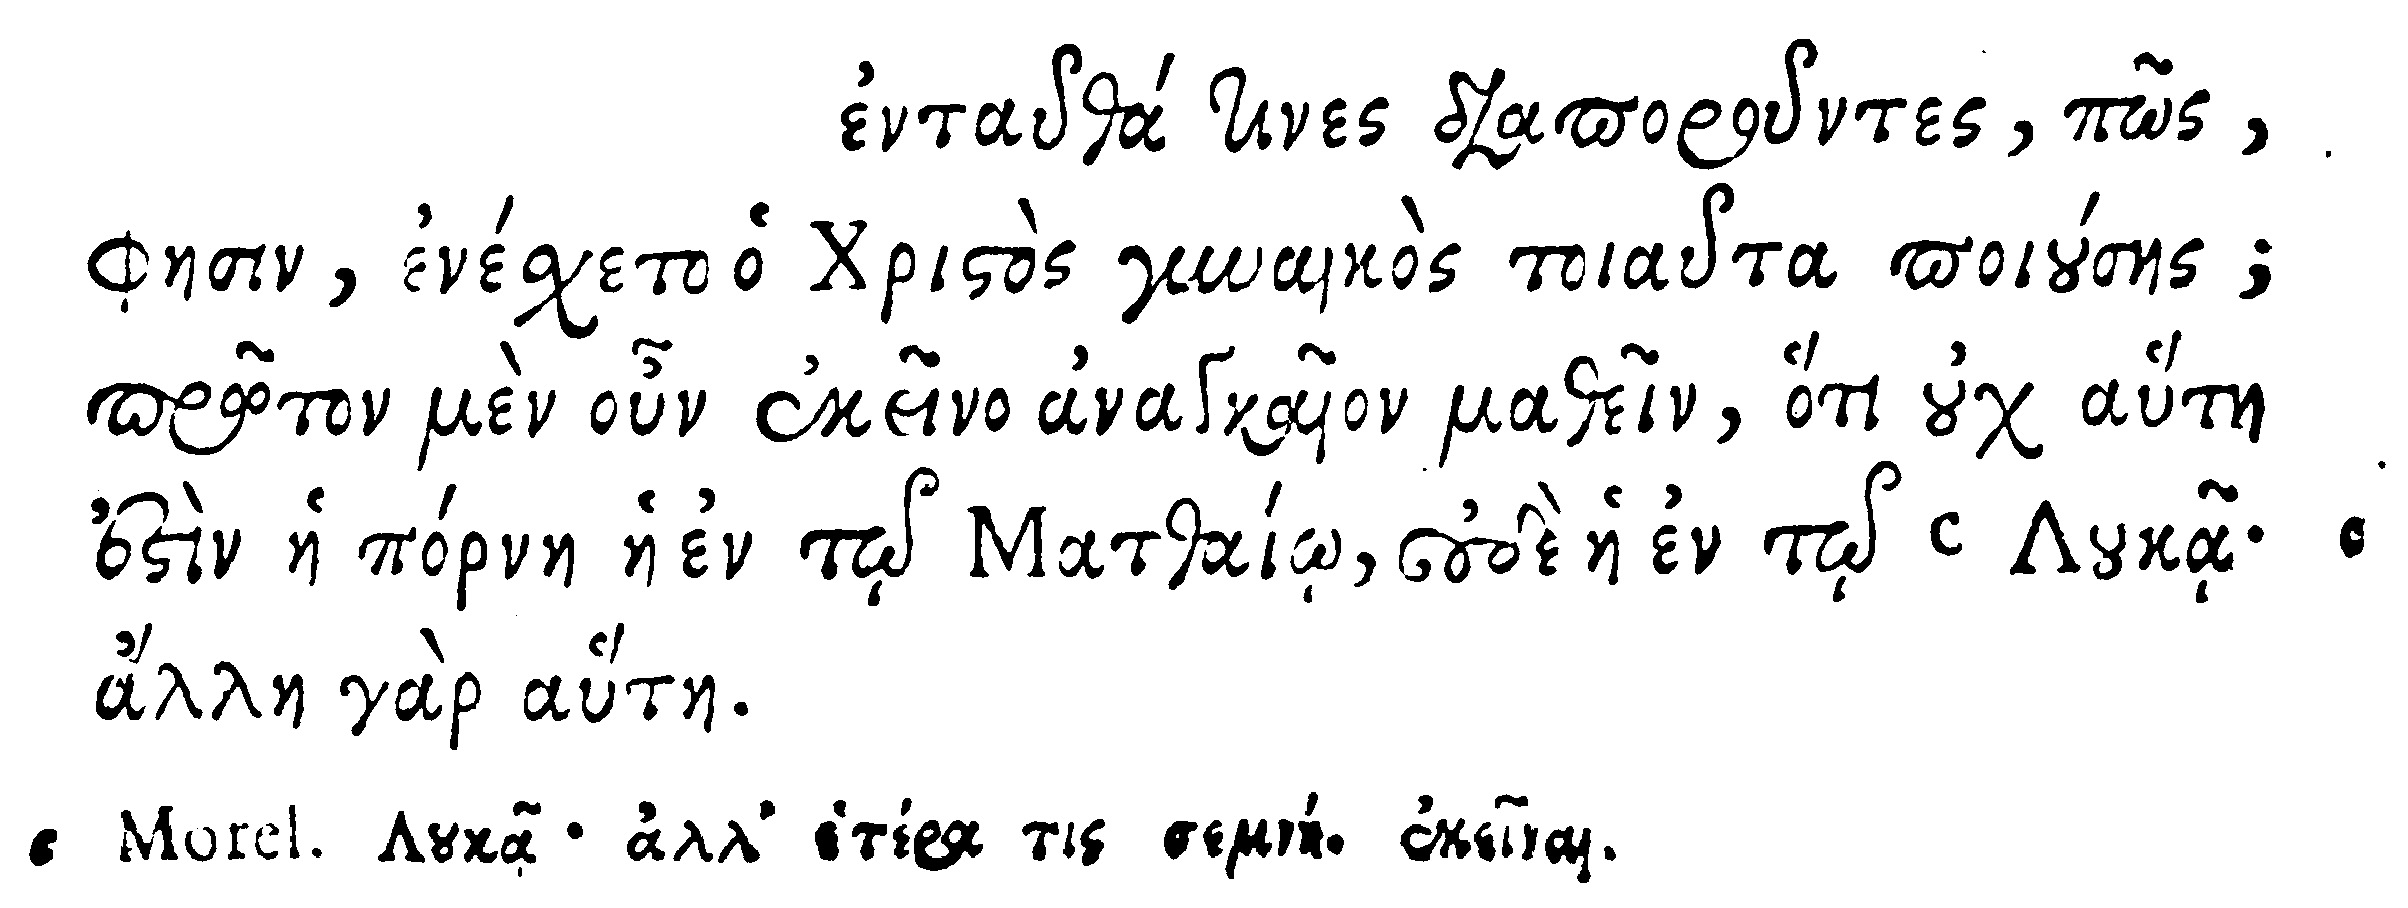 ἐνταῦθά τινες διαποροῦντες, πῶς,
φησιν, ἐνέχετο ὁ Χριστὸς γυναικὸς τοιαῦτα ποιούσης;
πρῶτον μὲν οὖν ἐκεῖνο ἀναγκαῖον μαθεῖν, ὅτι οὐχ αὕτη
ἐστὶν ἡ πόρνη ἡ ἐν τῷ Ματθαίῳ, οὐδὲ ἡ ἐν τῷ c Λουκᾷ· c
ἄλλη γὰρ αὕτη.
c Morel. Λουκᾷ· ἀλλ' ἑτέρα τις σεμνή. ἐκεῖναι.